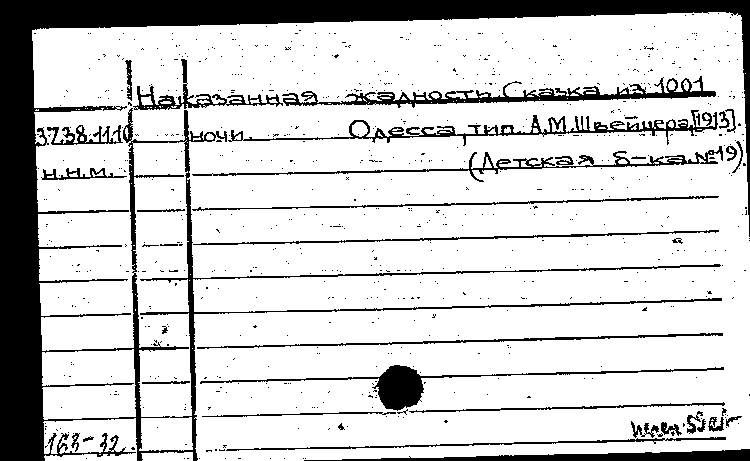 Наказанная жадность. Сказка из 1001
37.38.11.10. ночи. Одесса, тип. А.М.Швейцера,[1913].
н.н.м. (Детская б-ка.№19)
163-32.